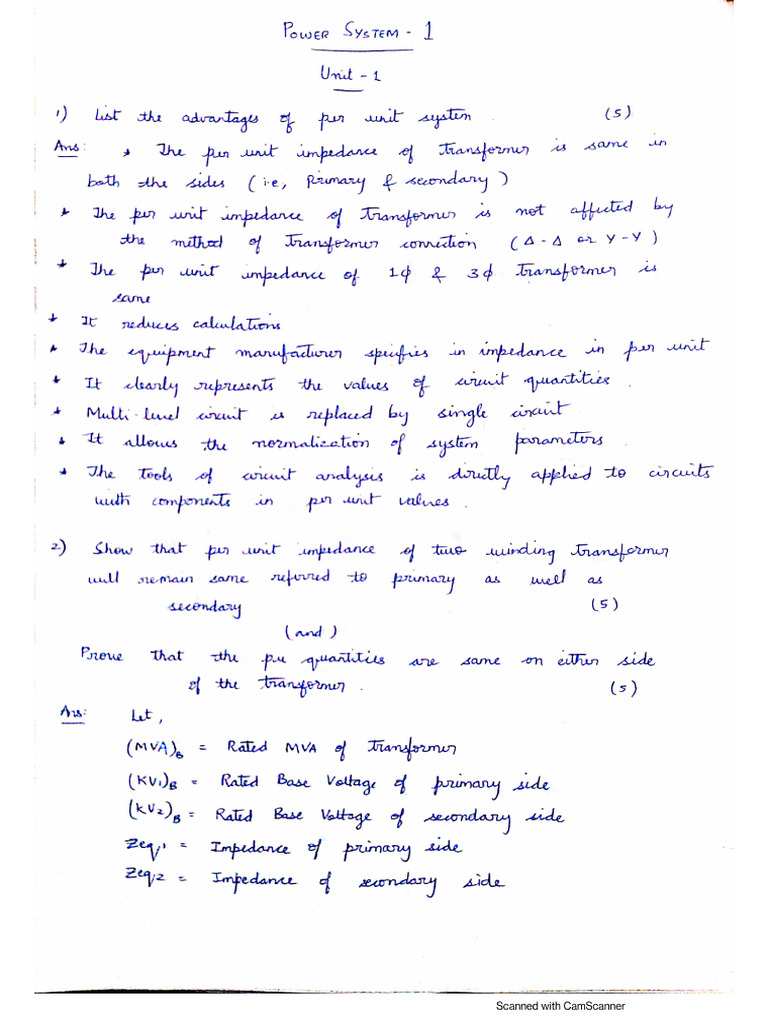 POWER SYSTEM - 1
Unit - 1
1) List the advantages of per unit system (5)
Ans: * The per unit impedance of transformer is same in
both the sides (i.e, Primary & secondary)
* The per unit impedance of transformer is not affected by
the method of transformer connection (Δ-Δ or Y-Y)
* The per unit impedance of 1ϕ & 3ϕ transformer is
same
* It reduces calculations
* The equipment manufacturer specifies in impedance in per unit
* It clearly represents the values of circuit quantities.
* Multi-level circuit is replaced by single circuit
* It allows the normalization of system parameters
* The tools of circuit analysis is directly applied to circuits
with components in per unit values.
2) Show that per unit impedance of two winding transformer
will remain same referred to primary as well as
secondary (5)
(and)
Prove that the p.u quantities are same on either side
of the transformer. (5)
Ans: Let,
(MVA)B = Rated MVA of transformer
(KV1)B = Rated Base Voltage of primary side
(KV2)B = Rated Base Voltage of secondary side
Zeq,1 = Impedance of primary side
Zeq,2 = Impedance of secondary side
Scanned with CamScanner